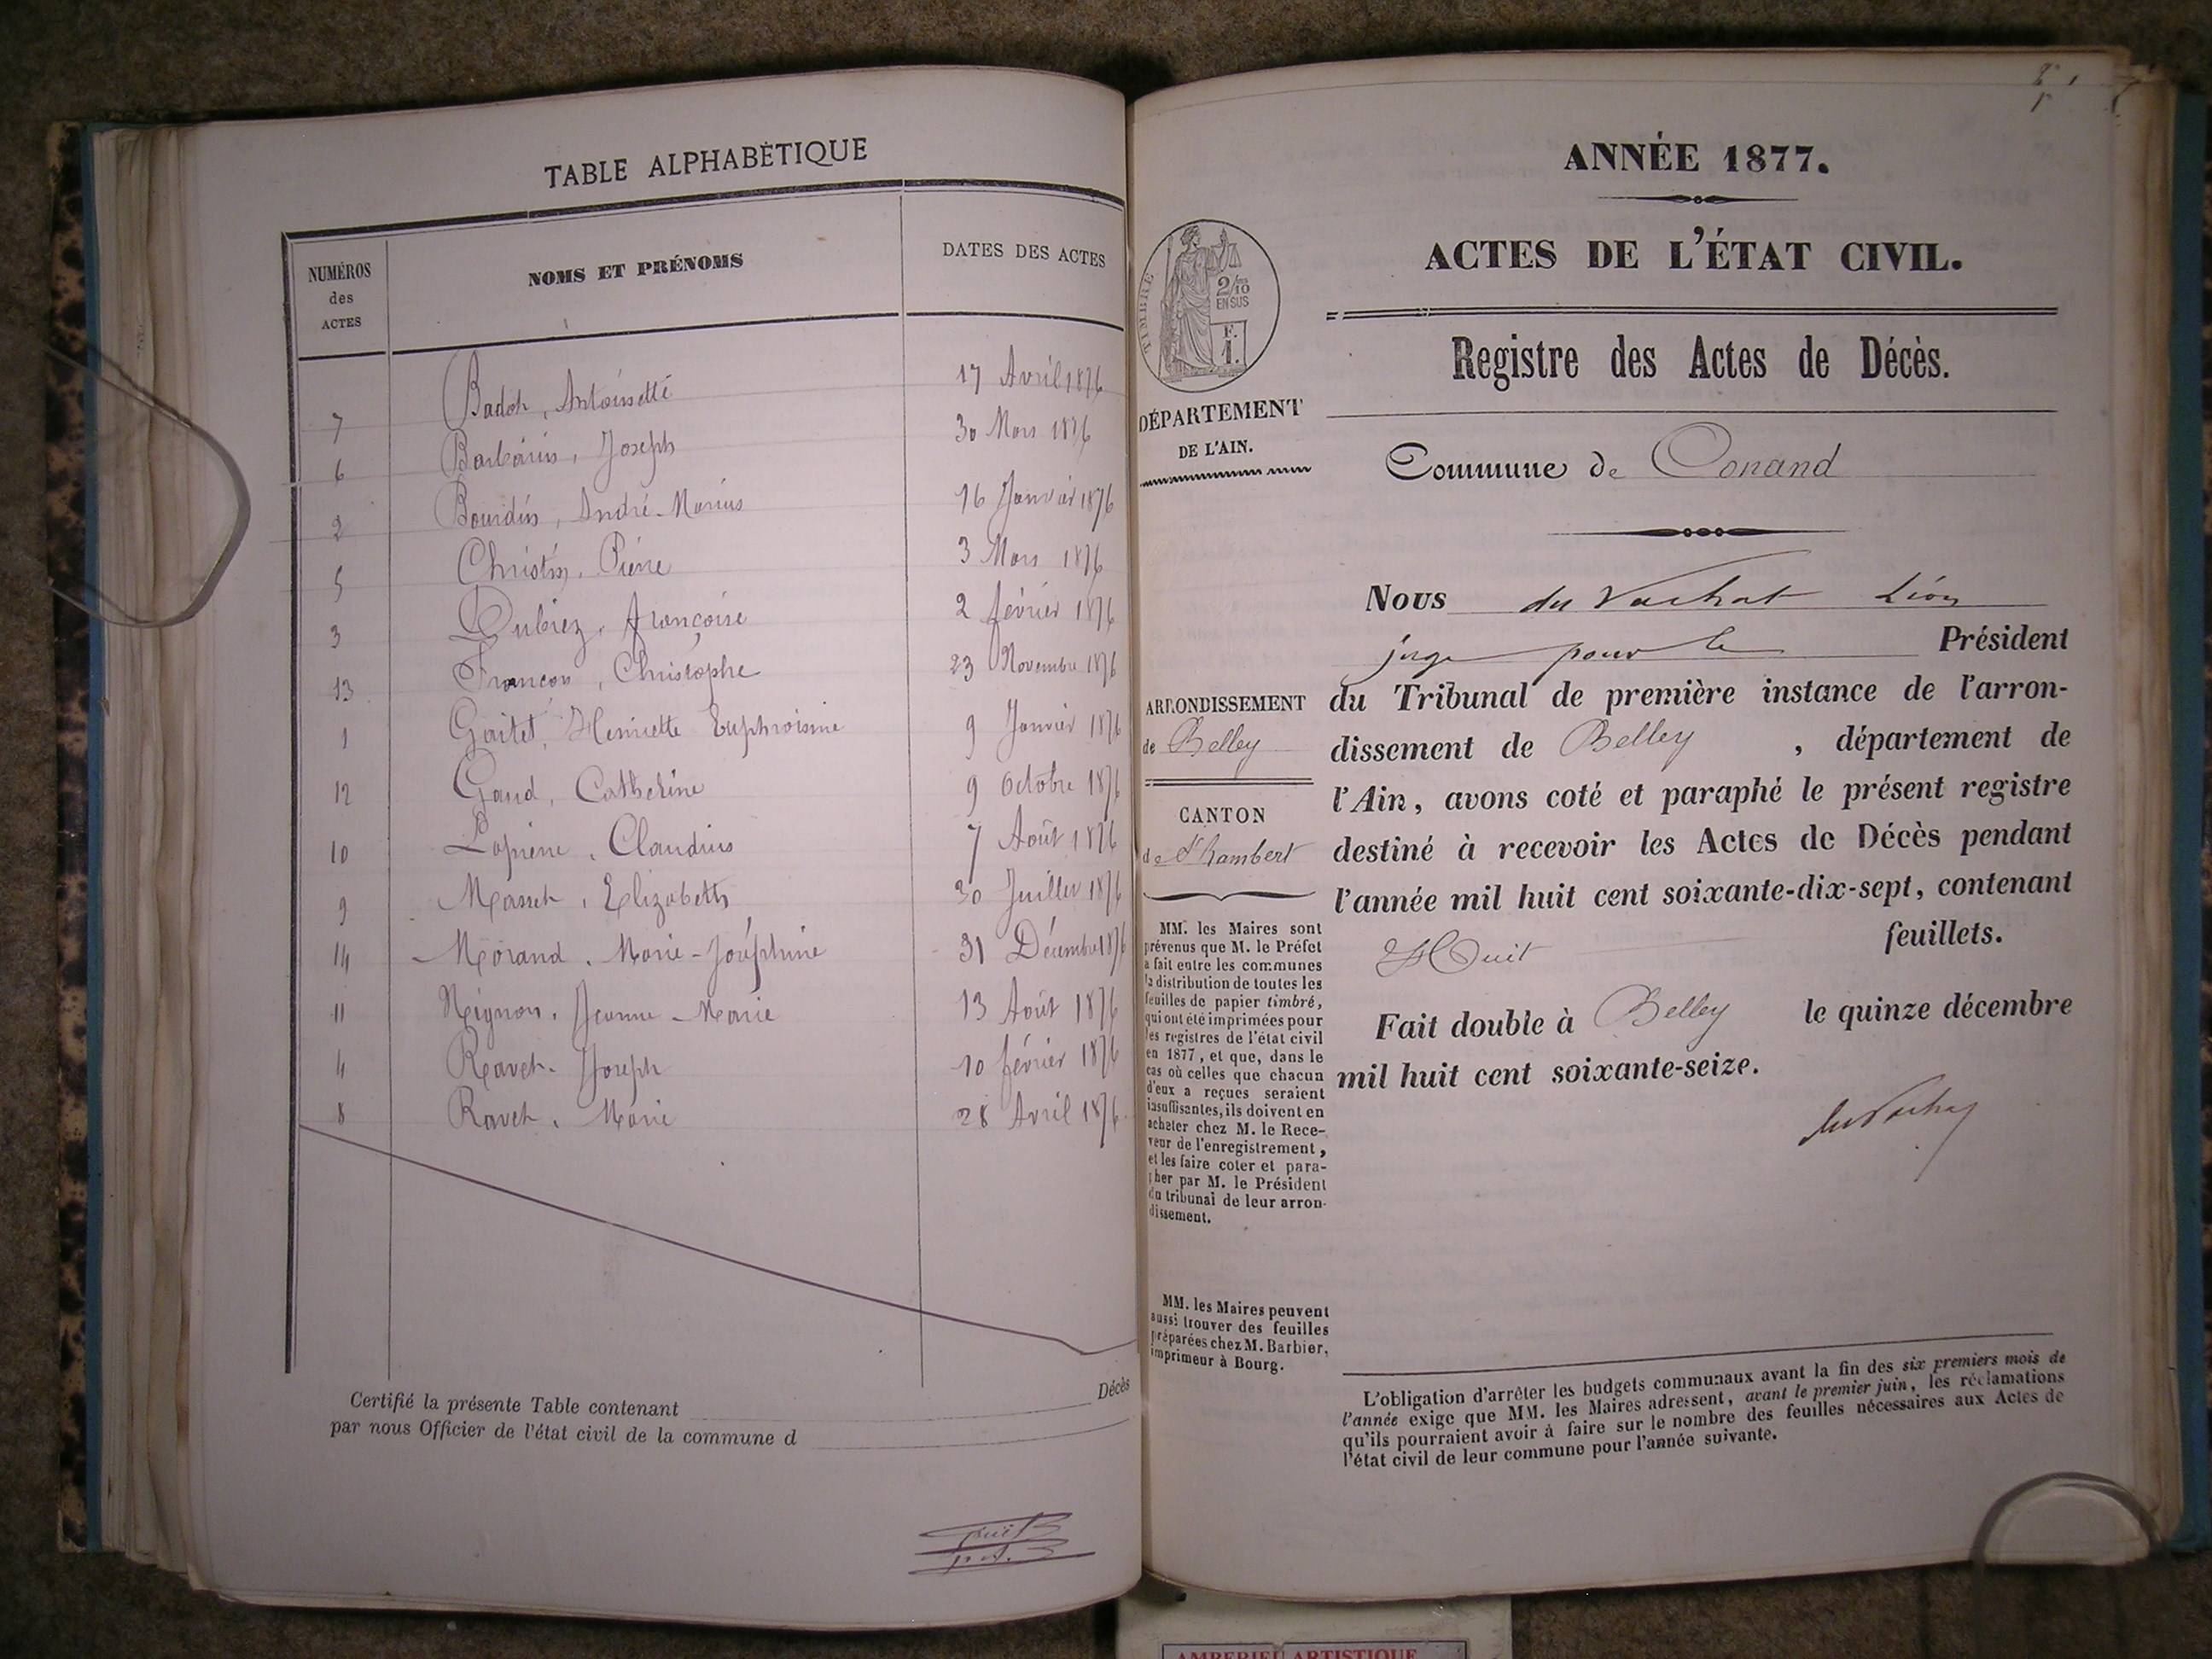 TABLE ALPHABÉTIQUE
NUMÉROS des ACTES NOMS ET PRÉNOMS DATES DES ACTES
7 Badot, Antoinette 17 Avril 1876
6 Barbarin, Joseph 30 Mars 1876
2 Bourdin, André-Marius 16 Janvier 1876
5 Christin, Pierre 3 Mars 1876
3 Dubiez, Françoise 2 février 1876
13 Françon, Christophe 23 Novembre 1876
1 Gaitet, Henriette Euphroisine 9 Janvier 1876
12 Gaud, Catherine 9 Octobre 1876
10 Lapierre, Claudius 7 Août 1876
9 Masset, Elizabeth 30 Juillet 1876
14 Morand, Marie-Joséphine 31 Décembre 1876
11 Mignon, Jeanne-Marie 13 Août 1876
4 Ravet, Joseph 10 février 1876
8 Ravet, Marie 28 Avril 1876
Certifié la présente Table contenant Décès
par nous Officier de l'état civil de la commune d
ANNÉE 1877.
ACTES DE L'ÉTAT CIVIL.
TIMBRE
2/10
EN SUS
F.
1.
Registre des Actes de Décès.
DÉPARTEMENT
DE L'AIN.
Commune de Conand
Nous du Vachat Léon
juge pour le Président
ARRONDISSEMENT
de Belley
CANTON
de St Rambert
du Tribunal de première instance de l'arron-
dissement de Belley, département de
l'Ain, avons coté et paraphé le présent registre
destiné à recevoir les Actes de Décès pendant
l'année mil huit cent soixante-dix-sept, contenant
Huit feuillets.
Fait double à Belley le quinze décembre
mil huit cent soixante-seize.
du Vachat
MM. les Maires sont
prévenus que M. le Préfet
a fait entre les communes
la distribution de toutes les
feuilles de papier timbré,
qui ont été imprimées pour
les registres de l'état civil
en 1877, et que, dans le
cas où celles que chacun
d'eux a reçues seraient
insuffisantes, ils doivent en
acheter chez M. le Rece-
veur de l'enregistrement,
et les faire coter et para-
pher par M. le Président
du tribunal de leur arron-
dissement.
MM. les Maires peuvent
aussi trouver des feuilles
préparées chez M. Barbier,
imprimeur à Bourg.
L'obligation d'arrêter les budgets communaux avant la fin des six premiers mois de
l'année exige que MM. les Maires adressent, avant le premier juin, les réclamations
qu'ils pourraient avoir à faire sur le nombre des feuilles nécessaires aux Actes de
l'état civil de leur commune pour l'année suivante.
AMBERIEU ARTISTIQUE